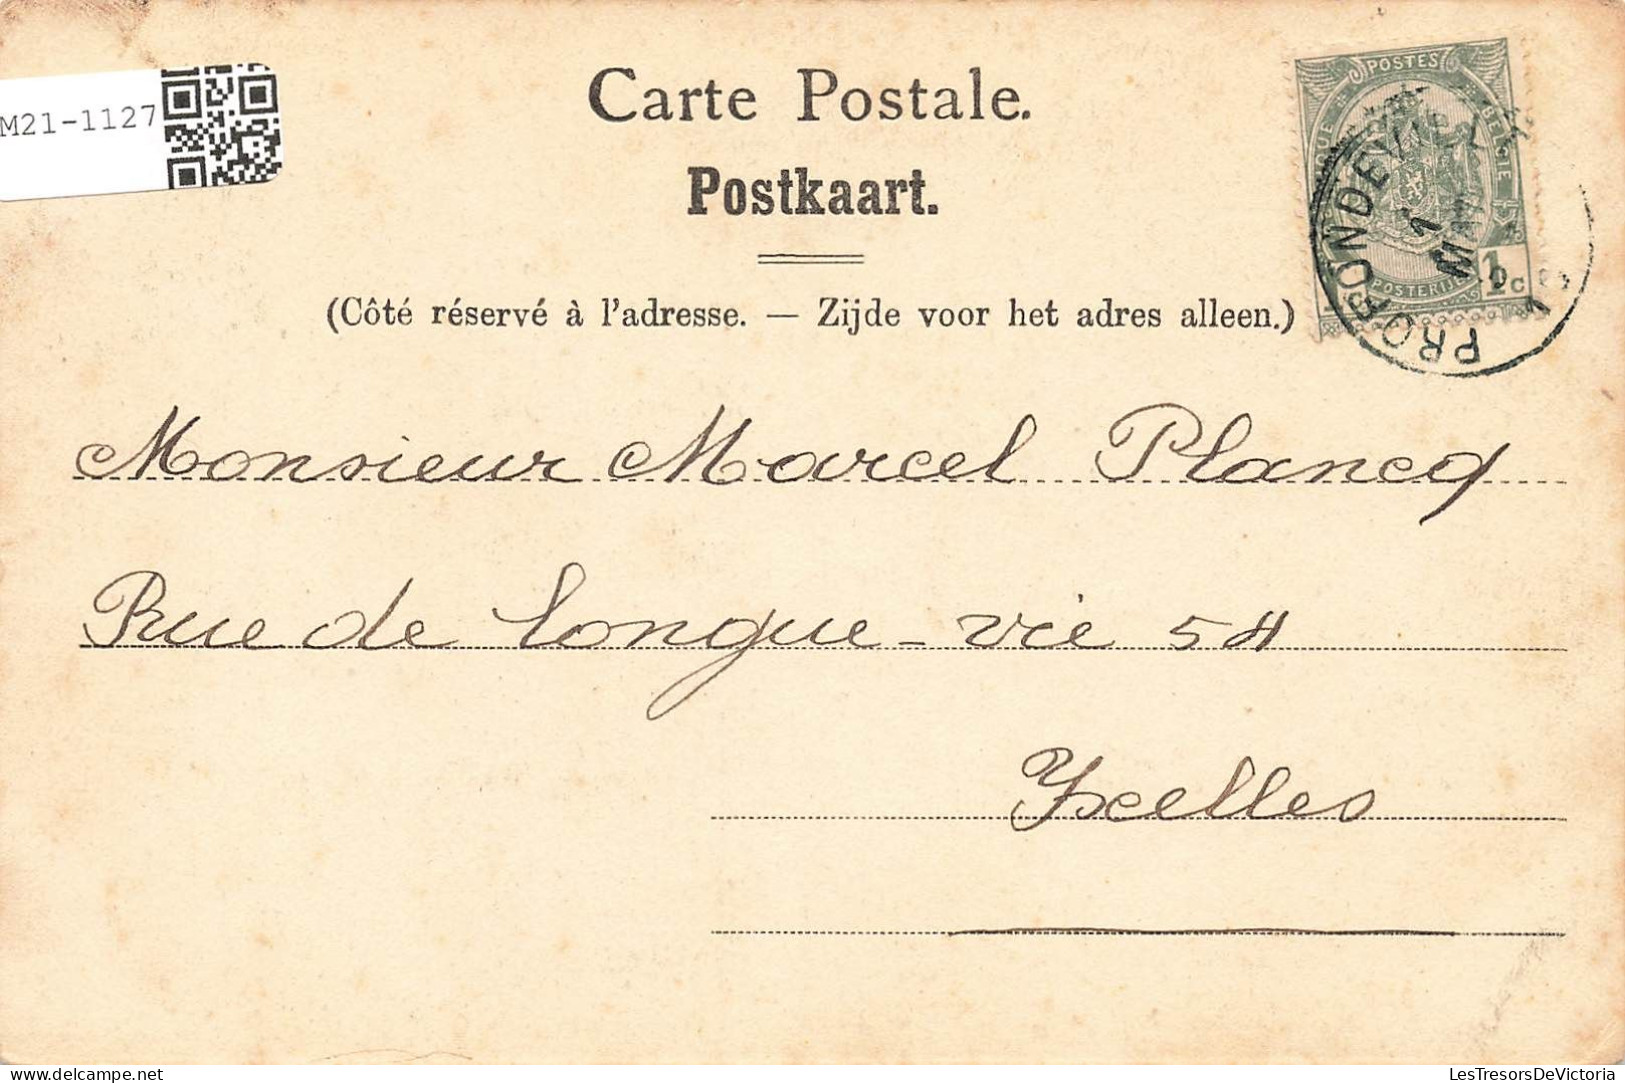 M21-1127
Carte Postale.
Postkaart.
(Côté réservé à l'adresse. — Zijde voor het adres alleen.)
POSTES
BELGIE
POSTERIJEN
1c
PROFONDEVILLE
1
Monsieur Marcel Plancq
Rue de longue-vie 54
Ixelles
LesTresorsDeVictoria